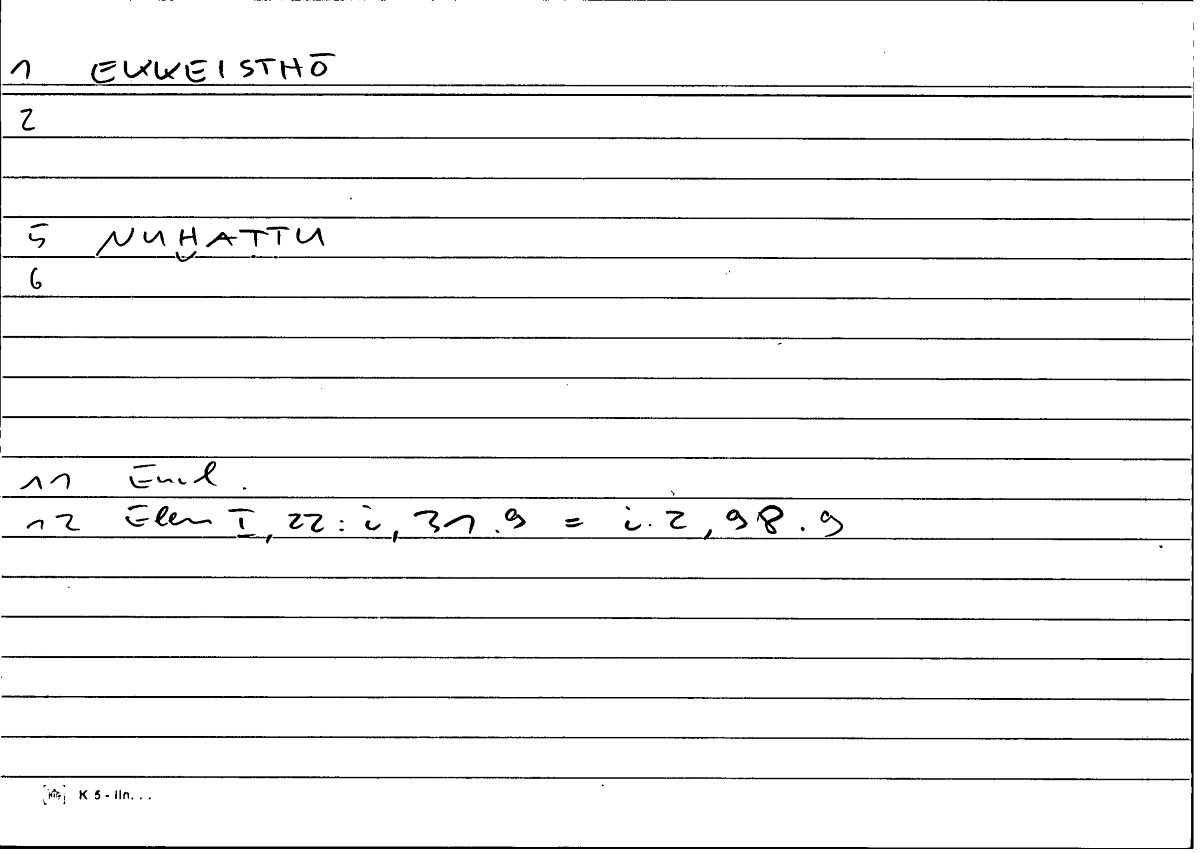 1 EKKEISTHŌ
2
5 NUḪAṬṬU
6
11 Eucl.
12 Elem I, 22: i, 31.9 = i.2, 98.9
K 5 - lin. . .